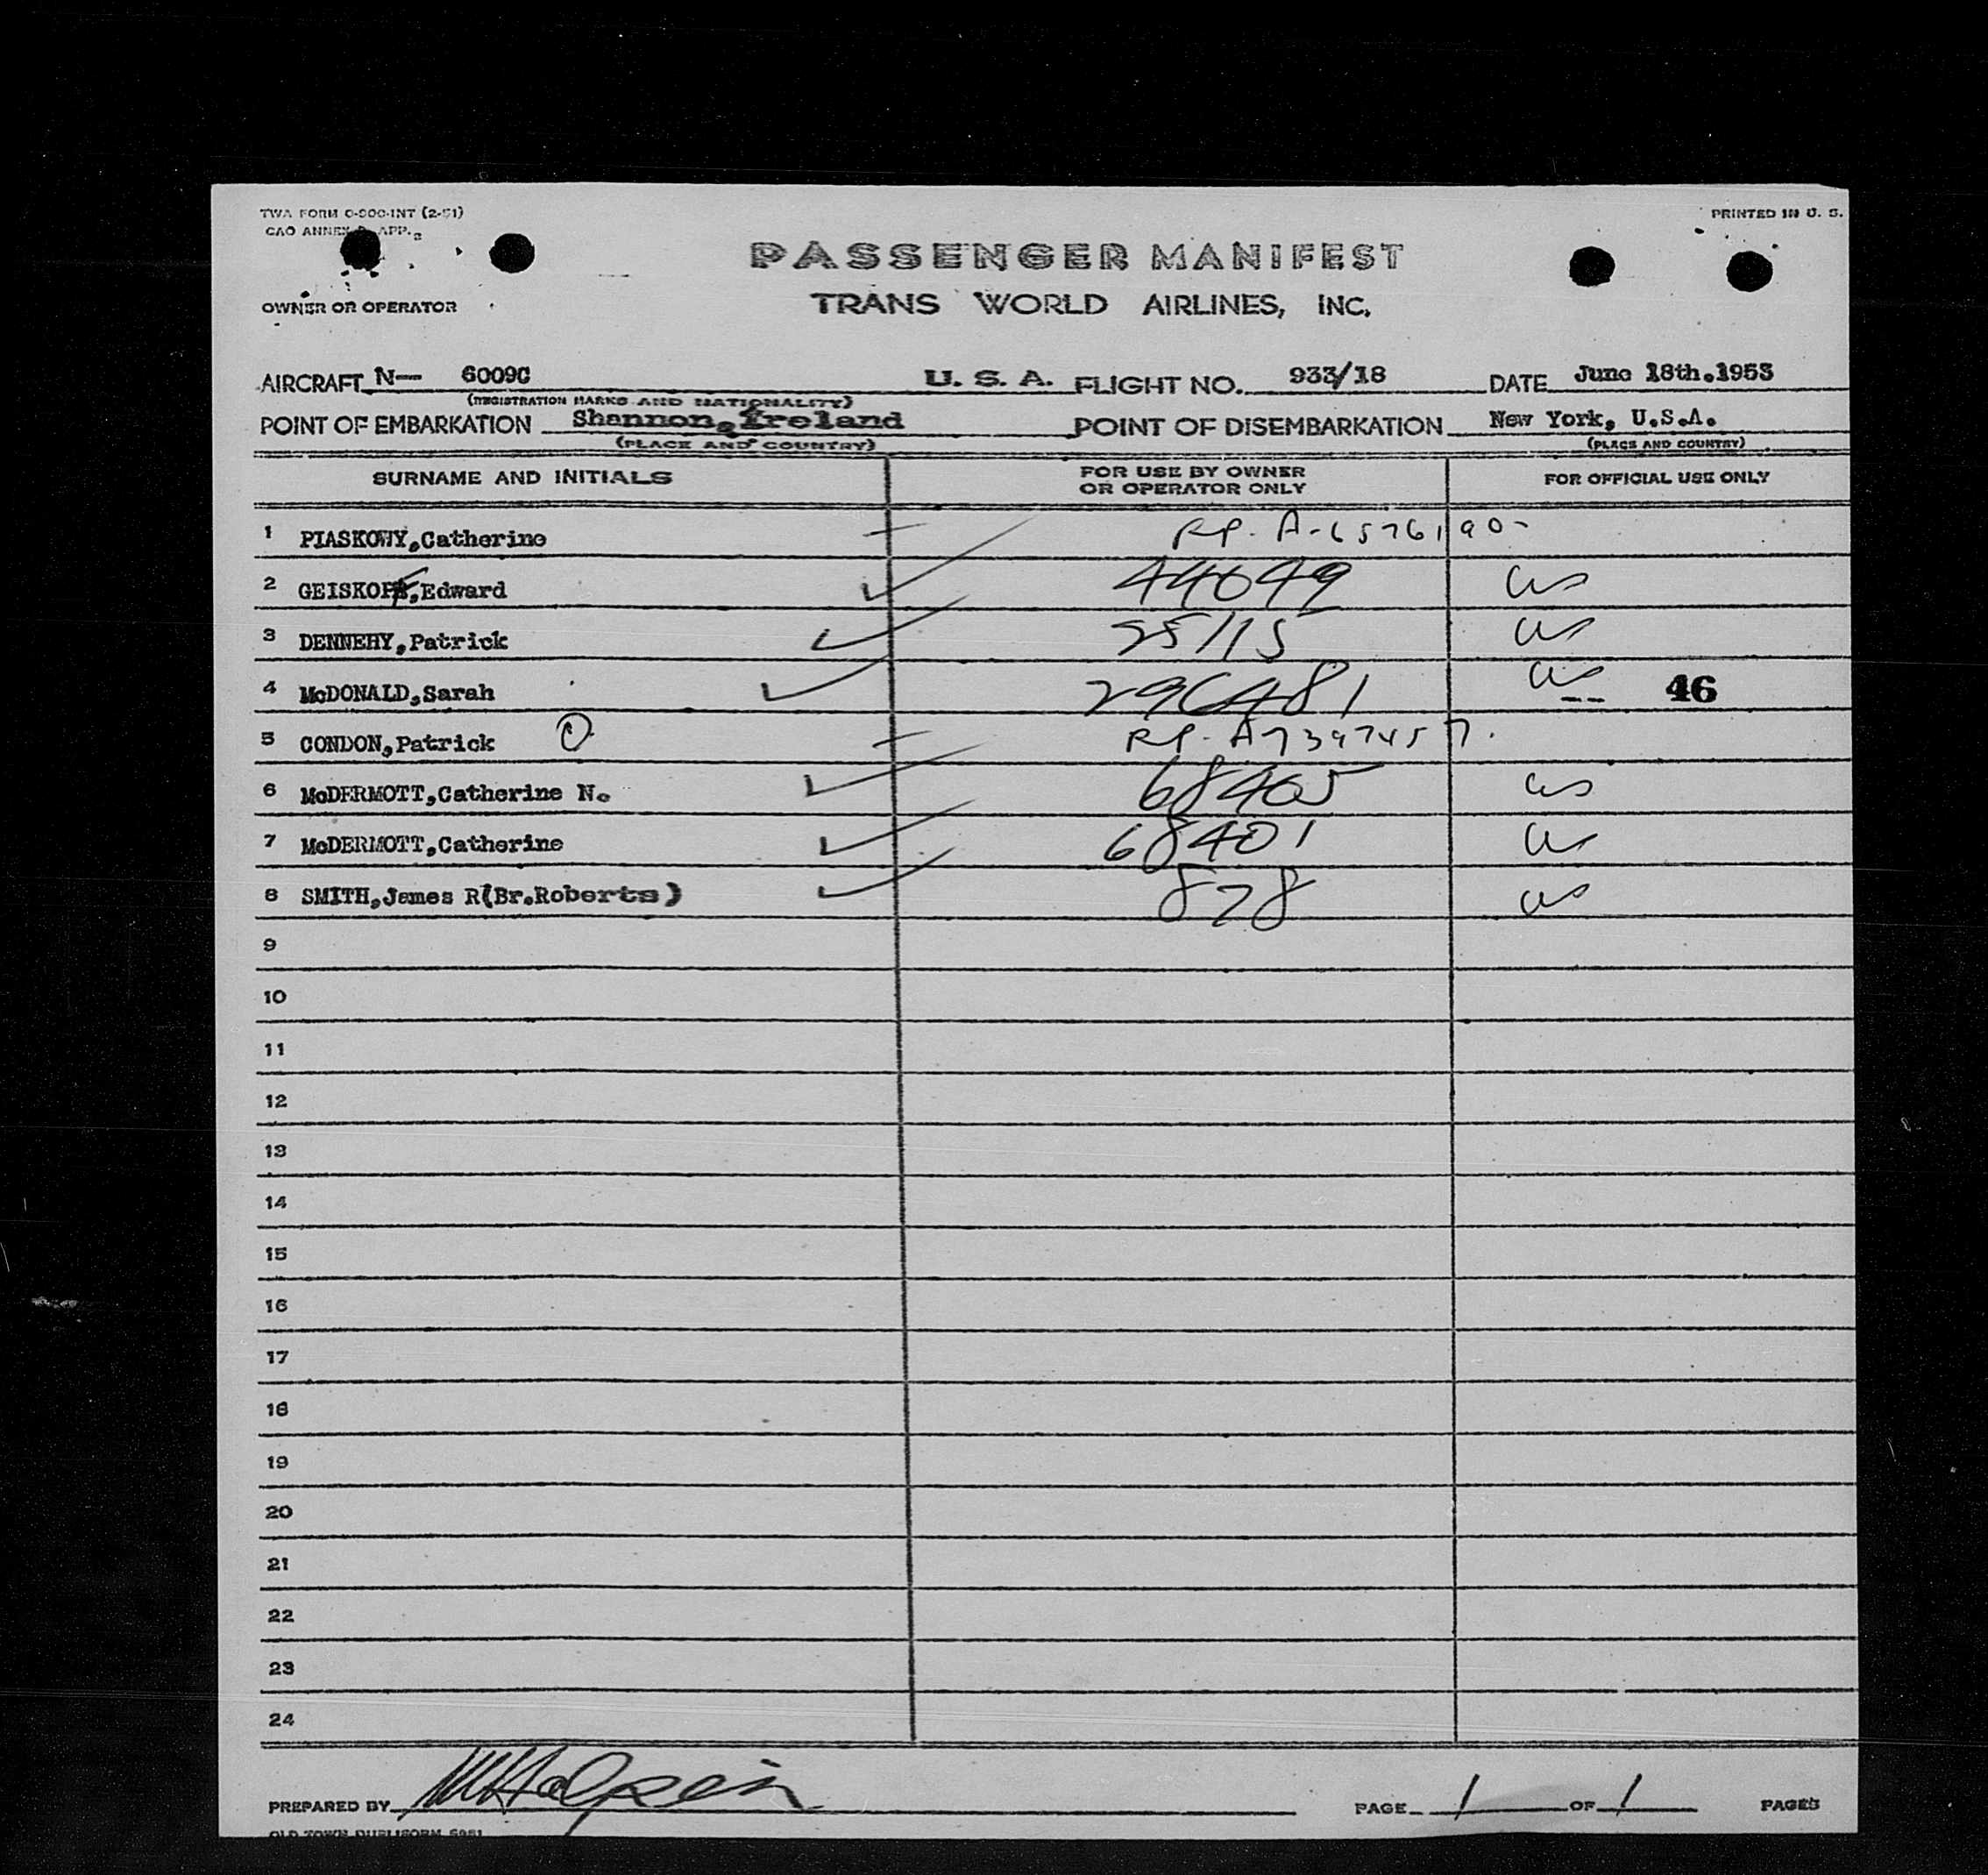 TWA FORM O-900-INT (2-51)
PRINTED IN U. S.
CAO ANNEX APP. 2
PASSENGER MANIFEST
OWNER OR OPERATOR
TRANS WORLD AIRLINES, INC.
AIRCRAFT N— 6009C U. S. A. FLIGHT NO. 933/18 DATE June 18th.1953
(REGISTRATION MARKS AND NATIONALITY)
POINT OF EMBARKATION Shannon, Ireland POINT OF DISEMBARKATION New York, U.S.A.
(PLACE AND COUNTRY) (PLACE AND COUNTRY)
SURNAME AND INITIALS FOR USE BY OWNER OR OPERATOR ONLY FOR OFFICIAL USE ONLY
1 PIASKOWY,Catherine RP. A-6576190-
2 GEISKOPF,Edward 44049 us
3 DENNEHY,Patrick 25115 us
4 McDONALD,Sarah 296481 us -- 46
5 CONDON,Patrick RP. A7397457.
6 McDERMOTT,Catherine N. 68405 us
7 McDERMOTT,Catherine 68401 us
8 SMITH,James R(Br.Roberts) 878 us
9
10
11
12
13
14
15
16
17
18
19
20
21
22
23
24
PREPARED BY MHalpin PAGE 1 OF 1 PAGES
OLD TOWN DUPLIFORM 5951